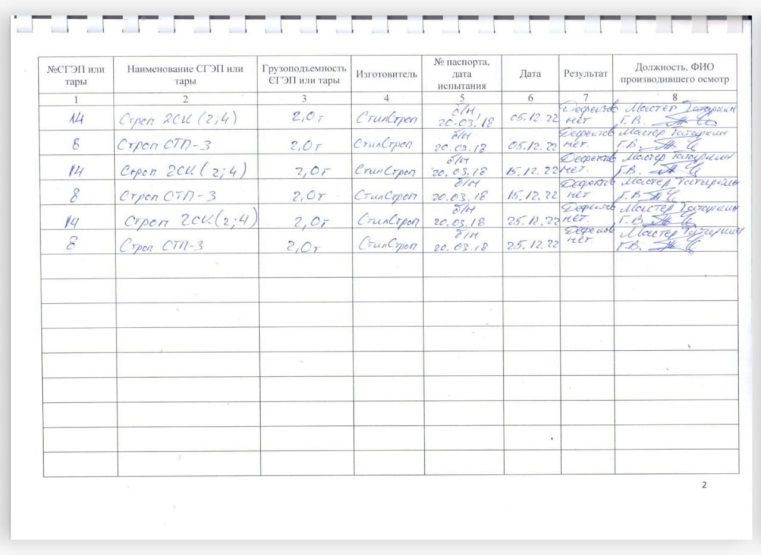 №СГЭП или тары | Наименование СГЭП или тары | Грузоподъемность СГЭП или тары | Изготовитель | № паспорта, дата испытания | Дата | Результат | Должность, ФИО производившего осмотр
1 | 2 | 3 | 4 | 5 | 6 | 7 | 8
14 | Строп 2СК (2;4) | 2,0т | СтилСтроп | б/н 20.03.18 | 05.12.22 | Дефектов нет | Мастер Г.В.
8 | Строп СТП-3 | 2,0т | СтилСтроп | б/н 20.03.18 | 05.12.22 | Дефектов нет. | Мастер Г.В.
14 | Строп 2СК (2;4) | 2,0т | СтилСтроп | б/н 20.03.18 | 15.12.22 | Дефектов нет. | Мастер Г.В.
8 | Строп СТП-3 | 2,0т | СтилСтроп | б/н 20.03.18 | 15.12.22 | Дефектов нет | Мастер Г.В.
14 | Строп 2СК (2;4) | 2,0т | СтилСтроп | б/н 20.03.18 | 25.12.22 | Дефектов нет. | Мастер Г.В.
8 | Строп СТП-3 | 2,0т | СтилСтроп | б/н 20.03.18 | 25.12.22 | Дефектов нет | Мастер Г.В.
2